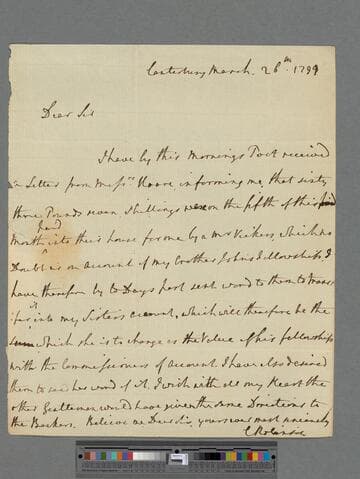 Canterbury March. 26th. 1799
Dear Sir
I have by this Mornings Post received
a Letter from Messrs Hoare informing me, that sixty
three Pounds seven shillings were on the fifth of this
Month paid into their house for me by a Mr Vickers, which no
Doubt is on account of my Brother Johns Fellowship. I
have therefore by to Days post sent word to them to trans
:fer it into my Sisters account, which will therefore be the
sum which she is to charge as the Value of his fellowship
with the Commissioners of account. I have also desired
them to send her word of it. I wish with all my Heart the
other Gentlemen would have given the same Directions to
the Bankers. Believe me Dear Sir, yours ever most sincerely